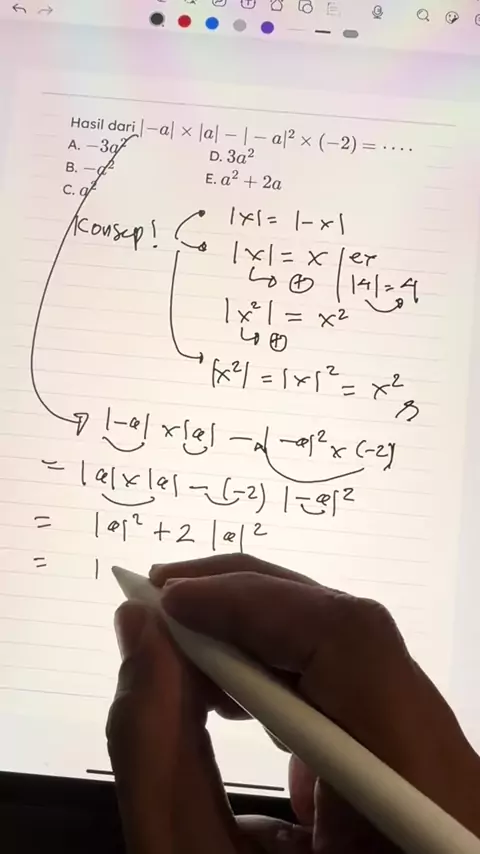 Hasil dari |−a| × |a| − | − a|² × (−2) = ....
A. −3a²
B. −a²
C. a²
D. 3a²
E. a² + 2a
Konsep!
|x| = |-x|
|x| = x
↳ ⊕
ex
|4| = 4
|x²| = x²
↳ ⊕
|x²| = |x|² = x²
|-a| x |a| - |-a|² x (-2)
= |a| x |a| - (-2) |-a|²
= |a|² + 2 |a|²
= |